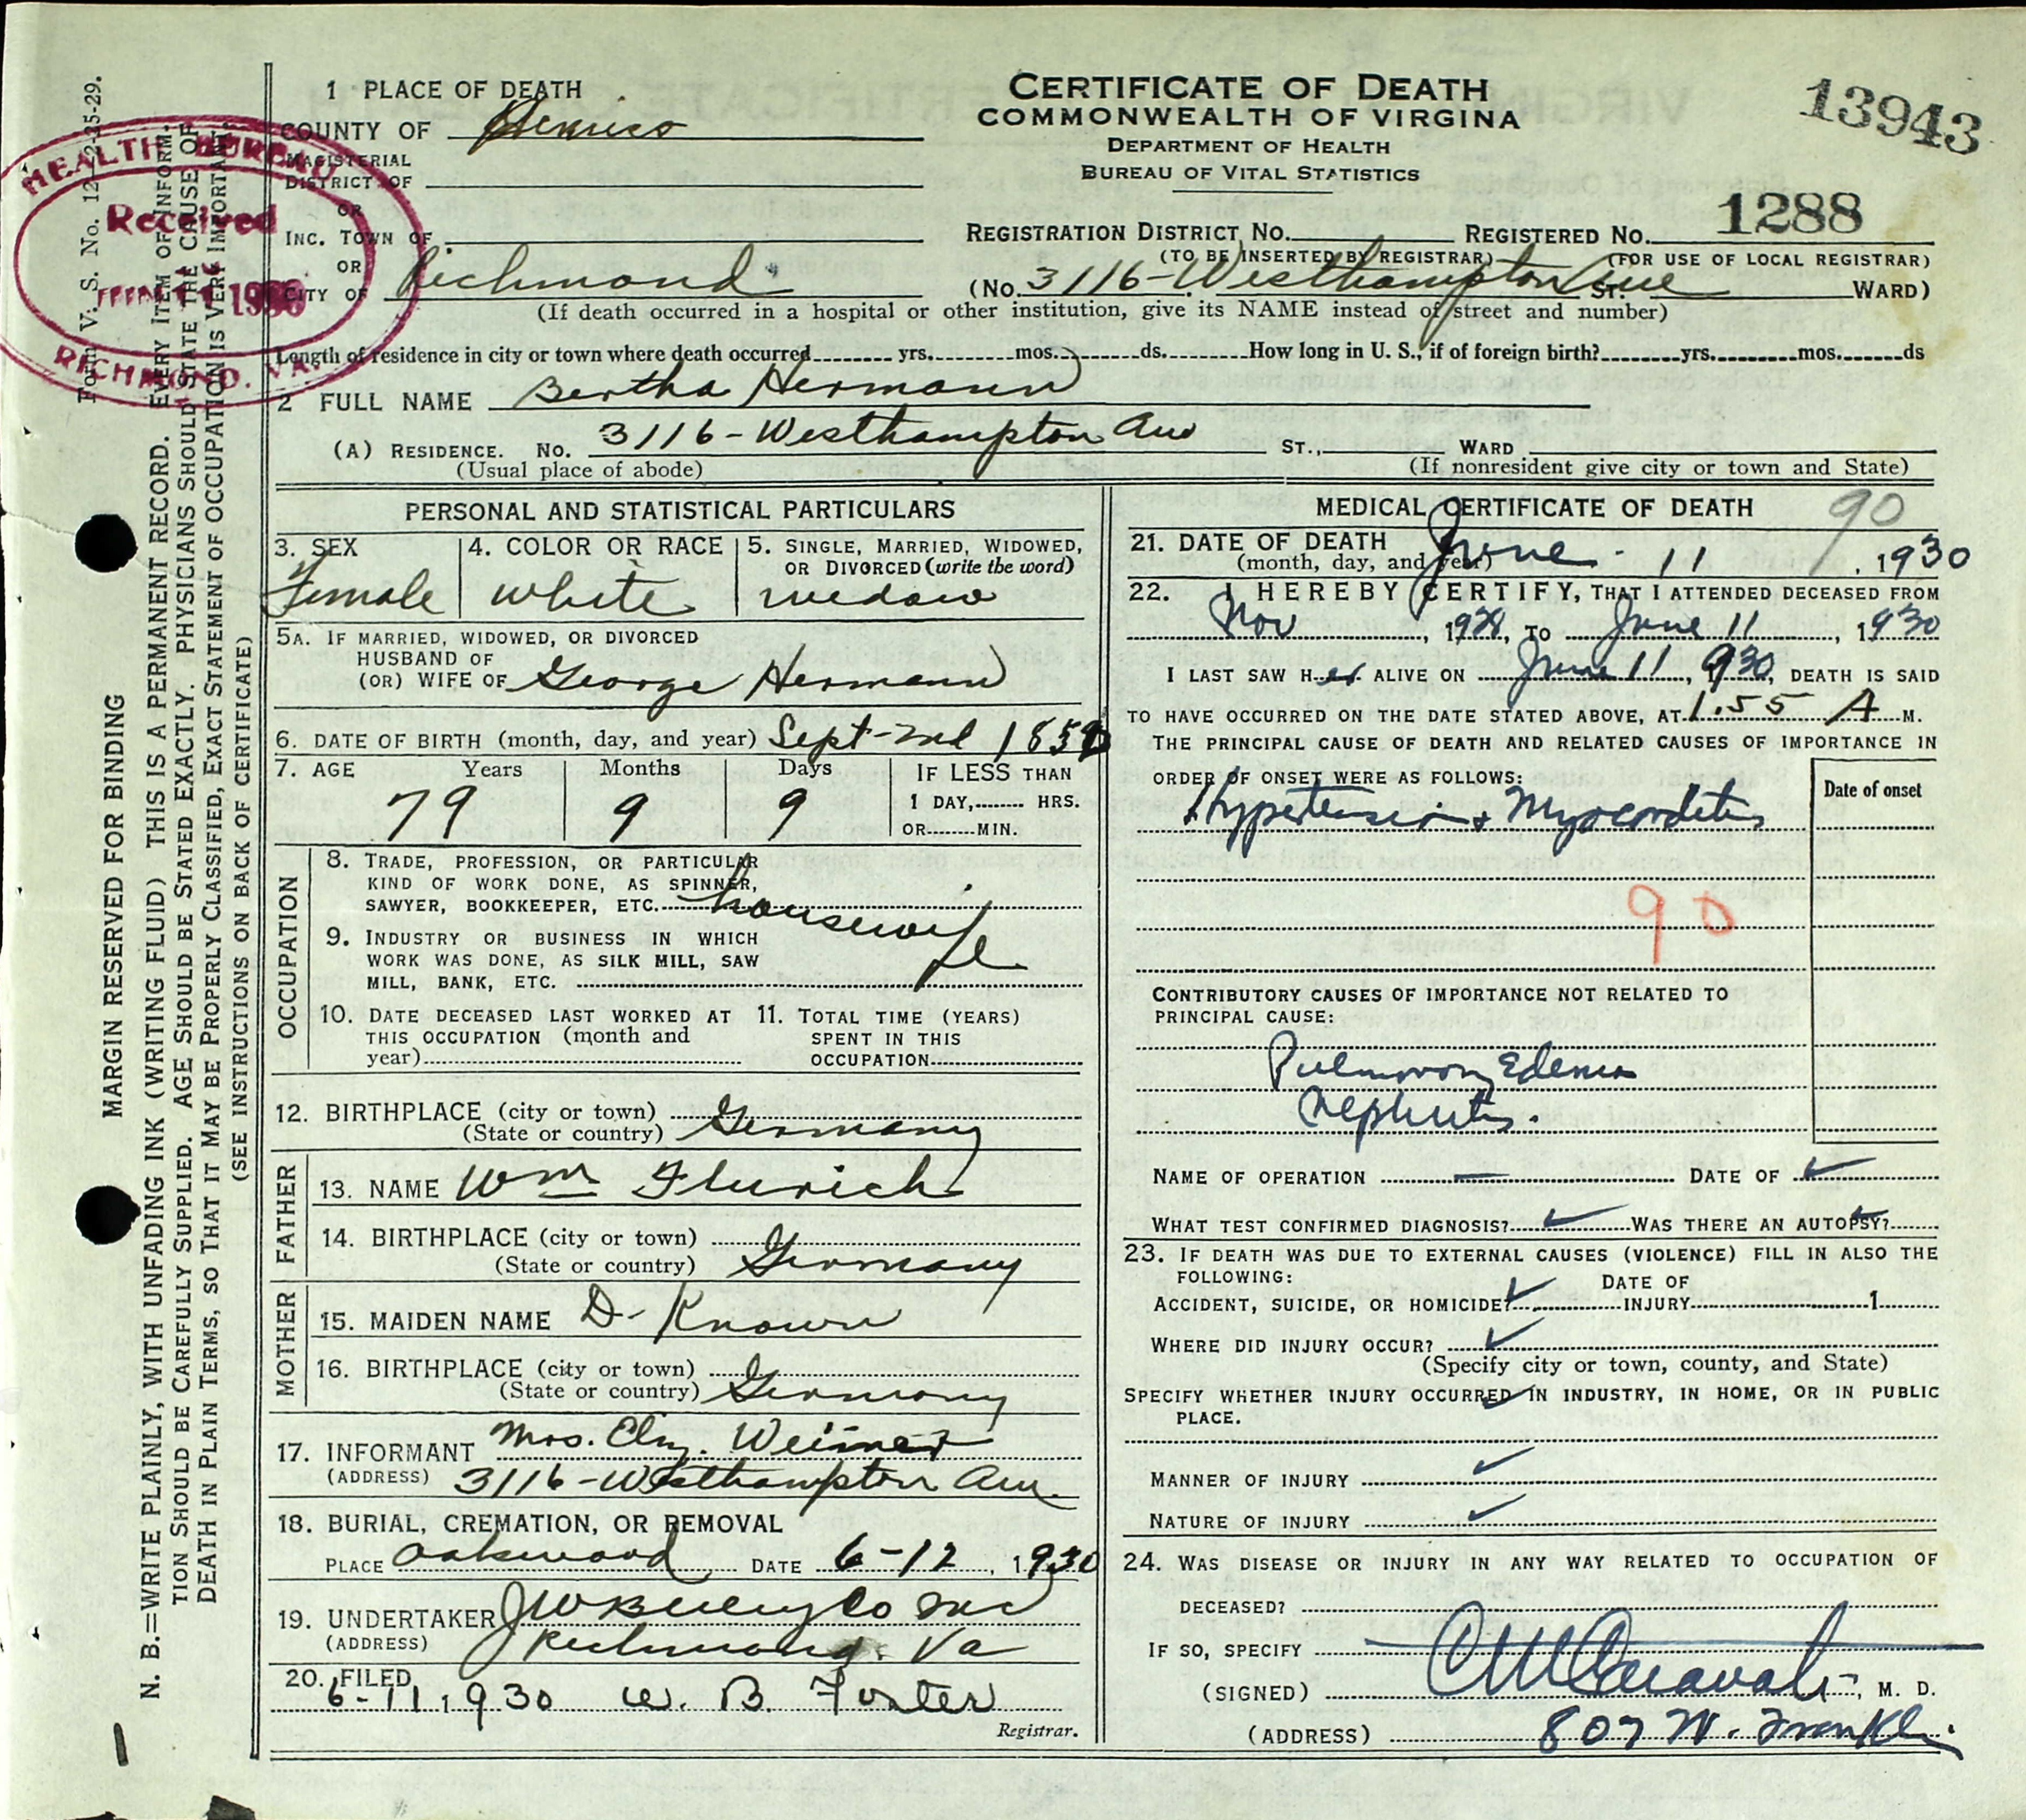 1 PLACE OF DEATH
COUNTY OF Henrico
MAGISTERIAL
DISTRICT OF
OR
INC. TOWN OF
OR
CITY OF Richmond
CERTIFICATE OF DEATH
COMMONWEALTH OF VIRGINA
DEPARTMENT OF HEALTH
BUREAU OF VITAL STATISTICS
13943
REGISTRATION DISTRICT NO. REGISTERED NO. 1288
(TO BE INSERTED BY REGISTRAR) (FOR USE OF LOCAL REGISTRAR)
(No. 3116-Westhampton Ave ST. WARD)
(If death occurred in a hospital or other institution, give its NAME instead of street and number)
Length of residence in city or town where death occurred yrs. mos. ds. How long in U. S., if of foreign birth? yrs. mos. ds
2 FULL NAME Bertha Hermann
(A) RESIDENCE. NO. 3116-Westhampton Ave ST., WARD
(Usual place of abode) (If nonresident give city or town and State)
HEALTH BUREAU
Received
1930
RICHMOND, VA.
Form V. S. No. 12 12-25-29.
MARGIN RESERVED FOR BINDING
N. B.=WRITE PLAINLY, WITH UNFADING INK (WRITING FLUID) THIS IS A PERMANENT RECORD. EVERY ITEM OF INFORM.
TION SHOULD BE CAREFULLY SUPPLIED. AGE SHOULD BE STATED EXACTLY. PHYSICIANS SHOULD STATE THE CAUSE OF
DEATH IN PLAIN TERMS, SO THAT IT MAY BE PROPERLY CLASSIFIED, EXACT STATEMENT OF OCCUPATION IS VERY IMPORTANT.
(SEE INSTRUCTIONS ON BACK OF CERTIFICATE)
PERSONAL AND STATISTICAL PARTICULARS
3. SEX
Female
4. COLOR OR RACE
White
5. SINGLE, MARRIED, WIDOWED,
OR DIVORCED (write the word)
widow
5A. IF MARRIED, WIDOWED, OR DIVORCED
HUSBAND OF
(OR) WIFE OF George Hermann
6. DATE OF BIRTH (month, day, and year) Sept-2nd 185
7. AGE Years Months Days
79 9 9
IF LESS THAN
1 DAY, HRS.
OR MIN.
OCCUPATION
8. TRADE, PROFESSION, OR PARTICULAR
KIND OF WORK DONE, AS SPINNER,
SAWYER, BOOKKEEPER, ETC. housewife
9. INDUSTRY OR BUSINESS IN WHICH
WORK WAS DONE, AS SILK MILL, SAW
MILL, BANK, ETC.
10. DATE DECEASED LAST WORKED AT
THIS OCCUPATION (month and
year)
11. TOTAL TIME (YEARS)
SPENT IN THIS
OCCUPATION
12. BIRTHPLACE (city or town)
(State or country) Germany
FATHER
13. NAME Wm
14. BIRTHPLACE (city or town)
(State or country) Germany
MOTHER
15. MAIDEN NAME D- Known
16. BIRTHPLACE (city or town)
(State or country) Germany
17. INFORMANT Mrs. Eliz. Weimer
(ADDRESS) 3116-Westhampton Ave.
18. BURIAL, CREMATION, OR REMOVAL
PLACE Oakwood DATE 6-12, 1930
19. UNDERTAKER J W Bliley Co Inc
(ADDRESS) Richmond, Va
20. FILED
6-11, 1930 W. B. Foster
Registrar.
MEDICAL CERTIFICATE OF DEATH 90
21. DATE OF DEATH
(month, day, and year) June 11, 1930
22. I HEREBY CERTIFY, THAT I ATTENDED DECEASED FROM
Nov, 1928, TO June 11, 1930
I LAST SAW HER ALIVE ON June 11, 1930, DEATH IS SAID
TO HAVE OCCURRED ON THE DATE STATED ABOVE, AT 1.55 A M.
THE PRINCIPAL CAUSE OF DEATH AND RELATED CAUSES OF IMPORTANCE IN
ORDER OF ONSET WERE AS FOLLOWS:
Date of onset
Hypertension & Myocarditis
90
CONTRIBUTORY CAUSES OF IMPORTANCE NOT RELATED TO
PRINCIPAL CAUSE:
Pulmonary Edema
Nephritis.
NAME OF OPERATION — DATE OF ✓
WHAT TEST CONFIRMED DIAGNOSIS? ✓ WAS THERE AN AUTOPSY? ✓
23. IF DEATH WAS DUE TO EXTERNAL CAUSES (VIOLENCE) FILL IN ALSO THE
FOLLOWING:
ACCIDENT, SUICIDE, OR HOMICIDE? ✓ DATE OF INJURY 1
WHERE DID INJURY OCCUR? ✓
(Specify city or town, county, and State)
SPECIFY WHETHER INJURY OCCURRED IN INDUSTRY, IN HOME, OR IN PUBLIC
PLACE. ✓
MANNER OF INJURY ✓
NATURE OF INJURY ✓
24. WAS DISEASE OR INJURY IN ANY WAY RELATED TO OCCUPATION OF
DECEASED?
IF SO, SPECIFY
(SIGNED) C M Caravati, M. D.
(ADDRESS) 807 W. Franklin